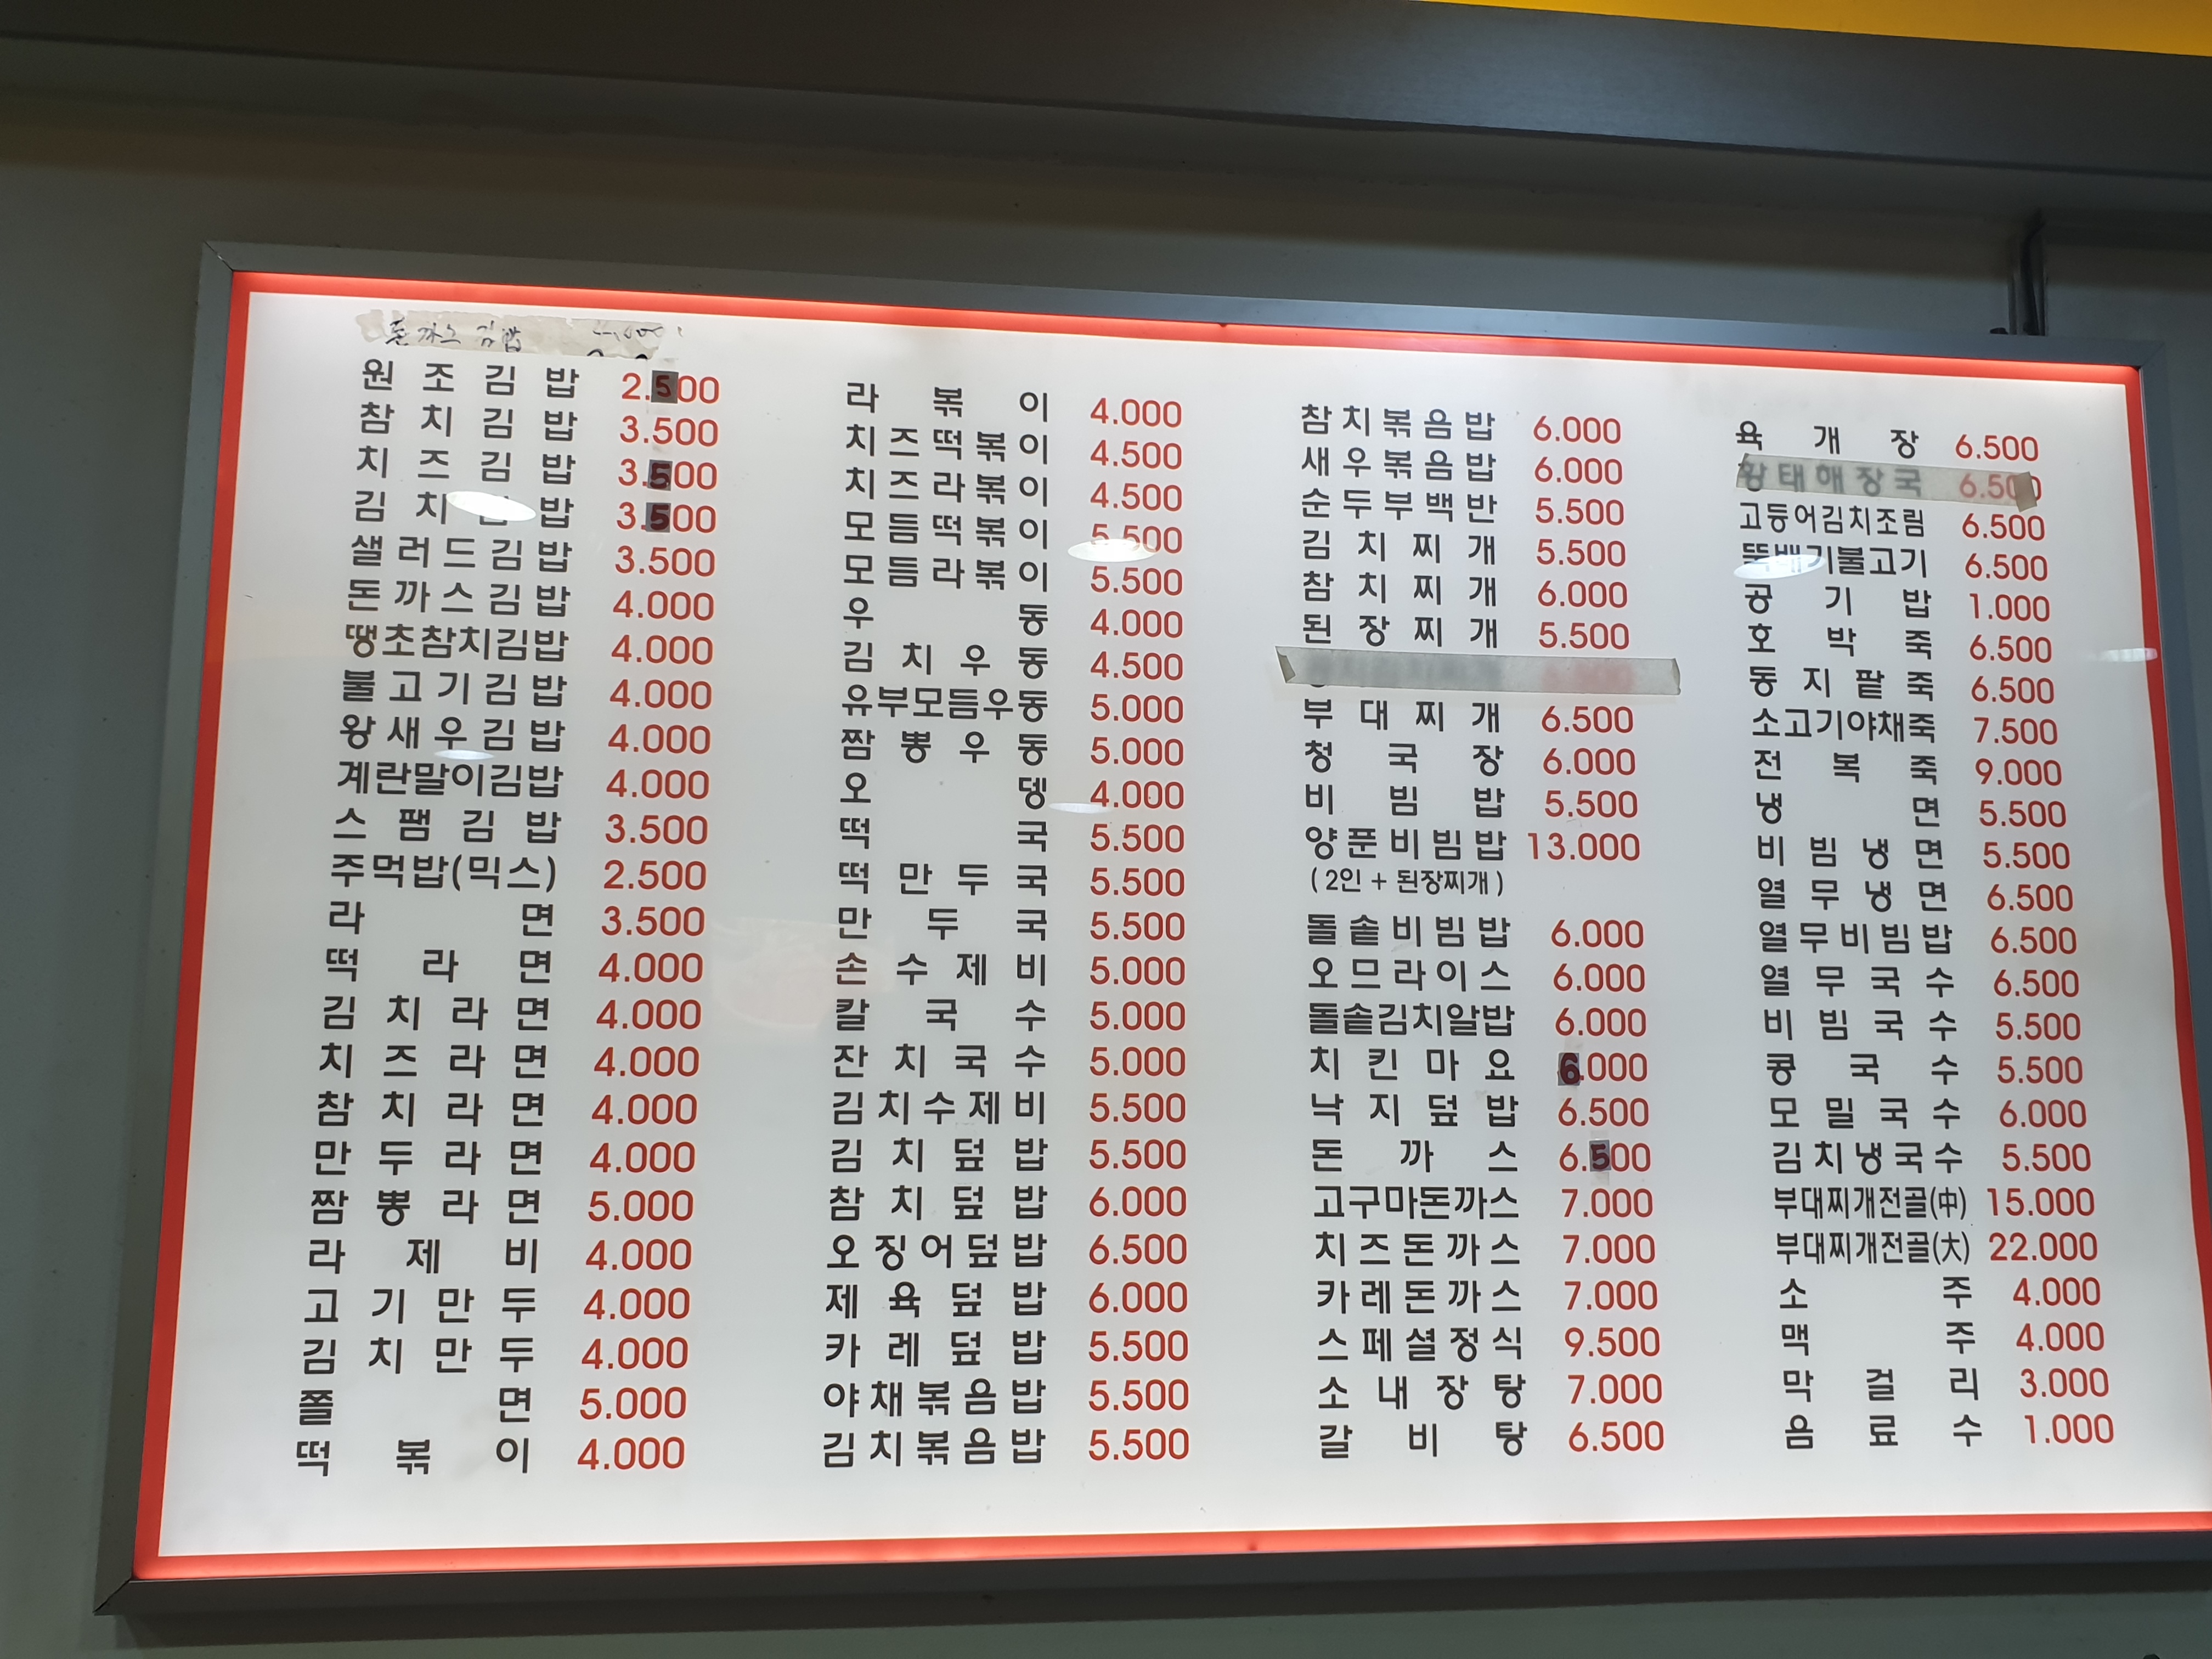 돈까스 김밥
원조김밥 2.500
참치김밥 3.500
치즈김밥 3.500
김치김밥 3.500
샐러드김밥 3.500
돈까스김밥 4.000
땡초참치김밥 4.000
불고기김밥 4.000
왕새우김밥 4.000
계란말이김밥 4.000
스팸김밥 3.500
주먹밥(믹스) 2.500
라면 3.500
떡라면 4.000
김치라면 4.000
치즈라면 4.000
참치라면 4.000
만두라면 4.000
짬뽕라면 5.000
라제비 4.000
고기만두 4.000
김치만두 4.000
쫄면 5.000
떡볶이 4.000
라볶이 4.000
치즈떡볶이 4.500
치즈라볶이 4.500
모듬떡볶이 5.500
모듬라볶이 5.500
우동 4.000
김치우동 4.500
유부모듬우동 5.000
짬뽕우동 5.000
오뎅 4.000
떡국 5.500
떡만두국 5.500
만두국 5.500
손수제비 5.000
칼국수 5.000
잔치국수 5.000
김치수제비 5.500
김치덮밥 5.500
참치덮밥 6.000
오징어덮밥 6.500
제육덮밥 6.000
카레덮밥 5.500
야채볶음밥 5.500
김치볶음밥 5.500
참치볶음밥 6.000
새우볶음밥 6.000
순두부백반 5.500
김치찌개 5.500
참치찌개 6.000
된장찌개 5.500
부대찌개 6.500
청국장 6.000
비빔밥 5.500
양푼비빔밥 13.000
(2인 + 된장찌개)
돌솥비빔밥 6.000
오므라이스 6.000
돌솥김치알밥 6.000
치킨마요 6.000
낙지덮밥 6.500
돈까스 6.500
고구마돈까스 7.000
치즈돈까스 7.000
카레돈까스 7.000
스페셜정식 9.500
소내장탕 7.000
갈비탕 6.500
육개장 6.500
황태해장국 6.500
고등어김치조림 6.500
뚝배기불고기 6.500
공기밥 1.000
호박죽 6.500
동지팥죽 6.500
소고기야채죽 7.500
전복죽 9.000
냉면 5.500
비빔냉면 5.500
열무냉면 6.500
열무비빔밥 6.500
열무국수 6.500
비빔국수 5.500
콩국수 5.500
모밀국수 6.000
김치냉국수 5.500
부대찌개전골(中) 15.000
부대찌개전골(大) 22.000
소주 4.000
맥주 4.000
막걸리 3.000
음료수 1.000